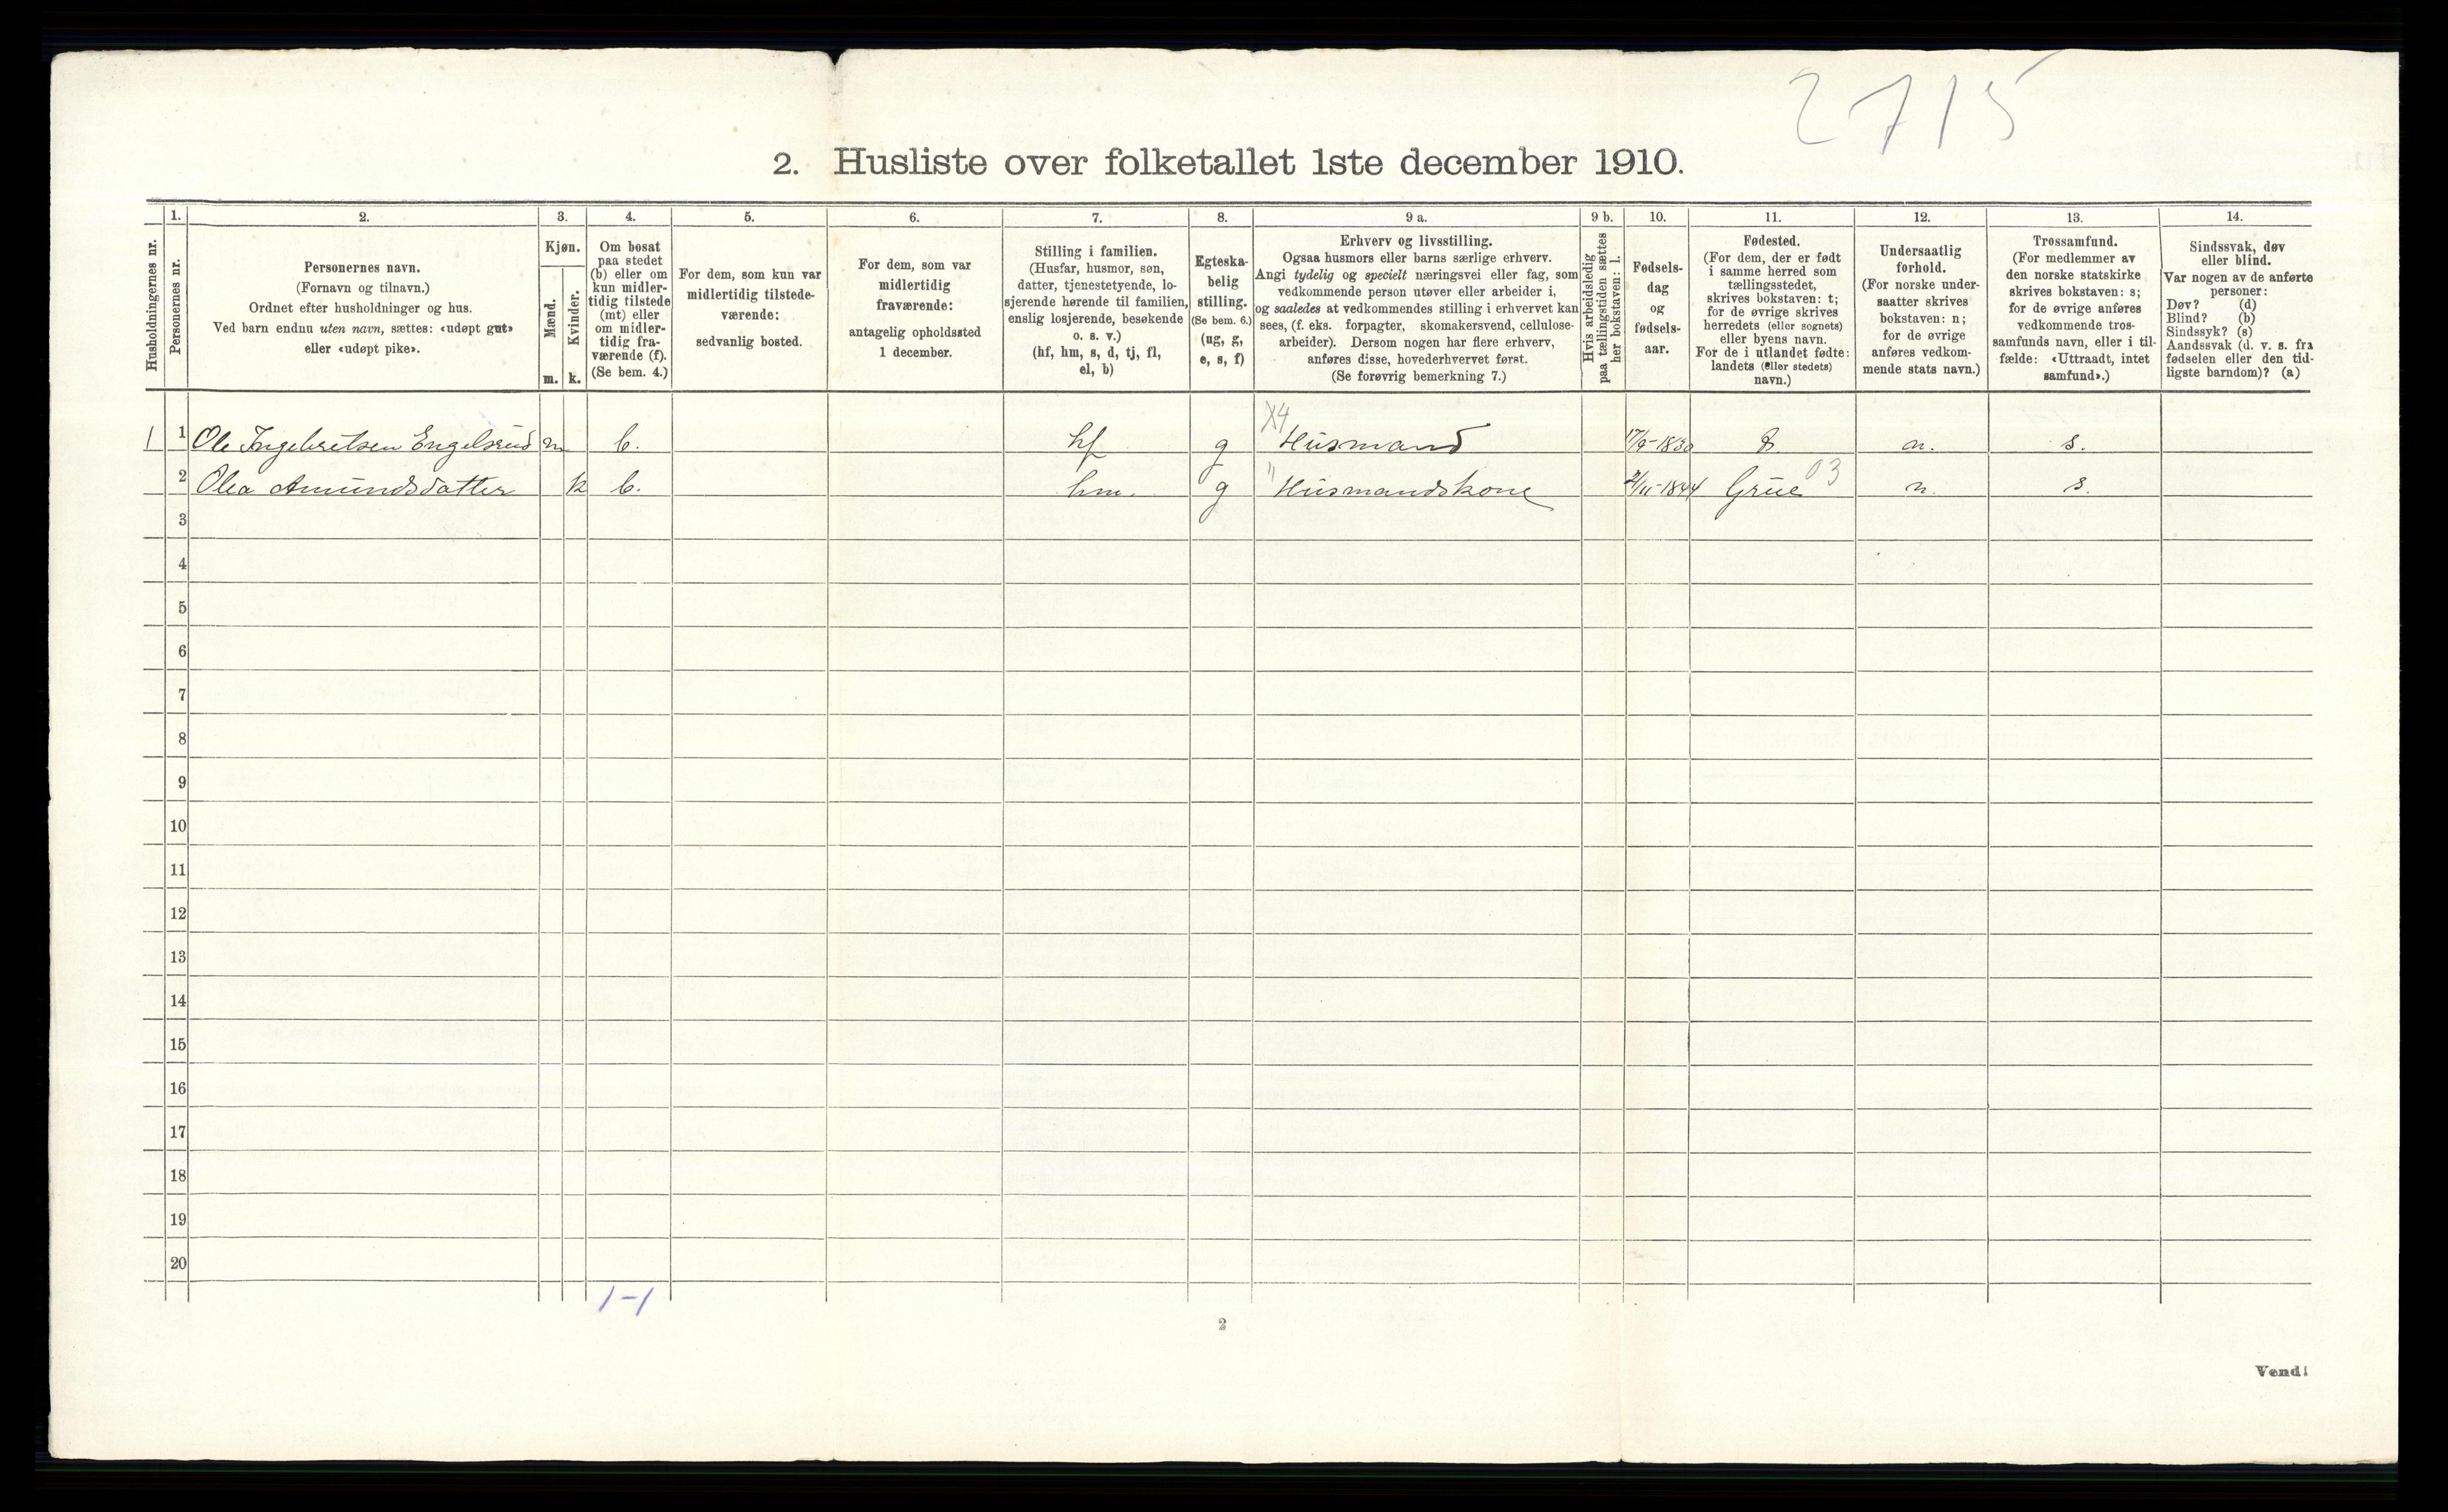 2715
2. Husliste over folketallet 1ste december 1910.
Husholdningernes nr.
1. Personernes nr.
2. Personernes navn.
(Fornavn og tilnavn.)
Ordnet efter husholdninger og hus.
Ved barn endnu uten navn, sættes: «udøpt gut»
eller «udøpt pike».
3. Kjøn.
Mænd. m.
Kvinder. k.
4. Om bosat
paa stedet
(b) eller om
kun midler-
tidig tilstede
(mt) eller
om midler-
tidig fra-
værende (f).
(Se bem. 4.)
5. For dem, som kun var
midlertidig tilstede-
værende:
sedvanlig bosted.
6. For dem, som var
midlertidig
fraværende:
antagelig opholdssted
1 december.
7. Stilling i familien.
(Husfar, husmor, søn,
datter, tjenestetyende, lo-
sjerende hørende til familien,
enslig losjerende, besøkende
o. s. v.)
(hf, hm, s, d, tj, fl,
el, b)
8. Egteska-
belig
stilling.
(Se bem. 6.)
(ug, g,
e, s, f)
9 a. Erhverv og livsstilling.
Ogsaa husmors eller barns særlige erhverv.
Angi tydelig og specielt næringsvei eller fag, som
vedkommende person utøver eller arbeider i,
og saaledes at vedkommendes stilling i erhvervet kan
sees, (f. eks. forpagter, skomakersvend, cellulose-
arbeider). Dersom nogen har flere erhverv,
anføres disse, hovederhvervet først.
(Se forøvrig bemerkning 7.)
9 b. Hvis arbeidsledig
paa tællingstiden sættes
her bokstaven: l.
10. Fødsels-
dag
og
fødsels-
aar.
11. Fødested.
(For dem, der er født
i samme herred som
tællingsstedet,
skrives bokstaven: t;
for de øvrige skrives
herredets (eller sognets)
eller byens navn.
For de i utlandet fødte:
landets (eller stedets)
navn.)
12. Undersaatlig
forhold.
(For norske under-
saatter skrives
bokstaven: n;
for de øvrige
anføres vedkom-
mende stats navn.)
13. Trossamfund.
(For medlemmer av
den norske statskirke
skrives bokstaven: s;
for de øvrige anføres
vedkommende tros-
samfunds navn, eller i til-
fælde: «Uttraadt, intet
samfund».)
14. Sindssvak, døv
eller blind.
Var nogen av de anførte
personer:
Døv? (d)
Blind? (b)
Sindssyk? (s)
Aandssvak (d. v. s. fra
fødselen eller den tid-
ligste barndom)? (a)
X4
1 1 Ole Ingebretsen Engelsrud m b. hf g Husmand 17/9-1830 t. n. s.
2 Olea Amundsdatter k b. hm. g " Husmandskone /11-1844 Grue 03 n. s.
3
4
5
6
7
8
9
10
11
12
13
14
15
16
17
18
19
20
1-1
2
Vend!